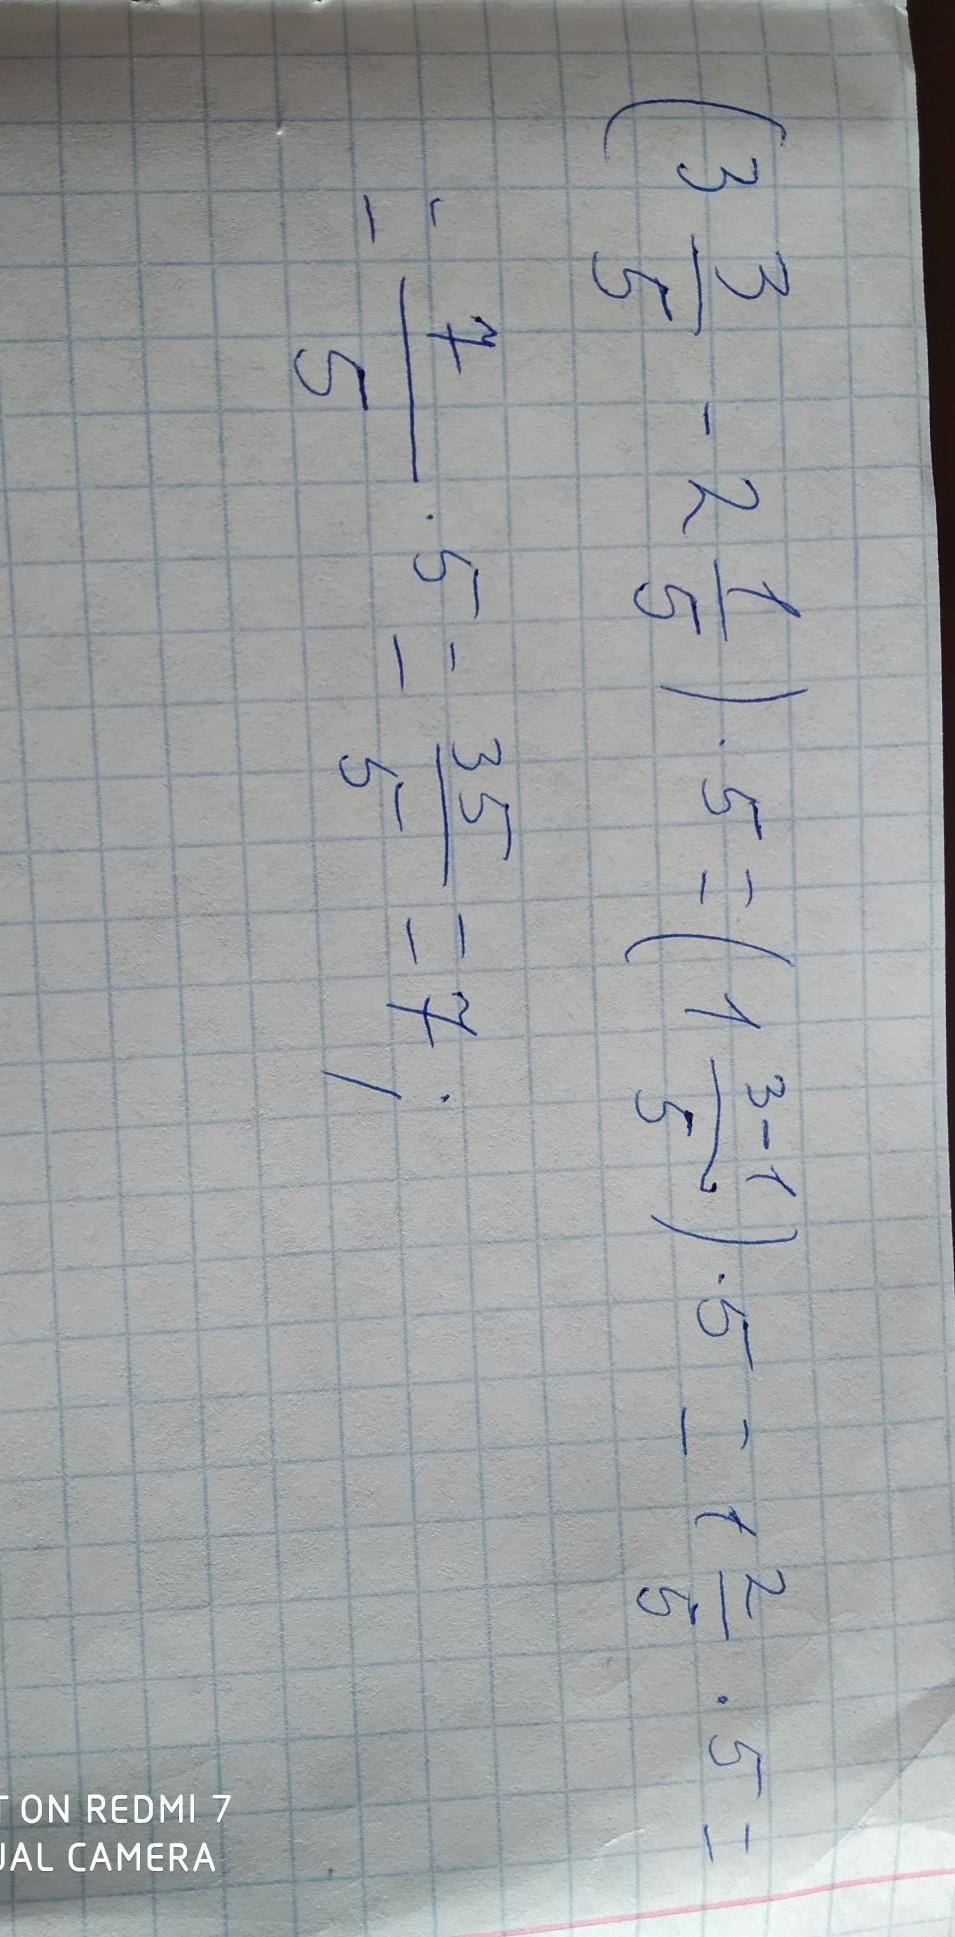 (3 3/5 - 2 1/5) · 5 = (1 3-1/5) · 5 = 1 2/5 · 5 =
= 7/5 · 5 = 35/5 = 7;
T ON REDMI 7
UAL CAMERA